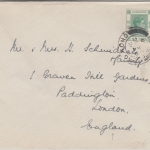 Mr. & Mrs. H. Schmidt
1 Craven Hill Gardens,
Paddington,
London,
England.